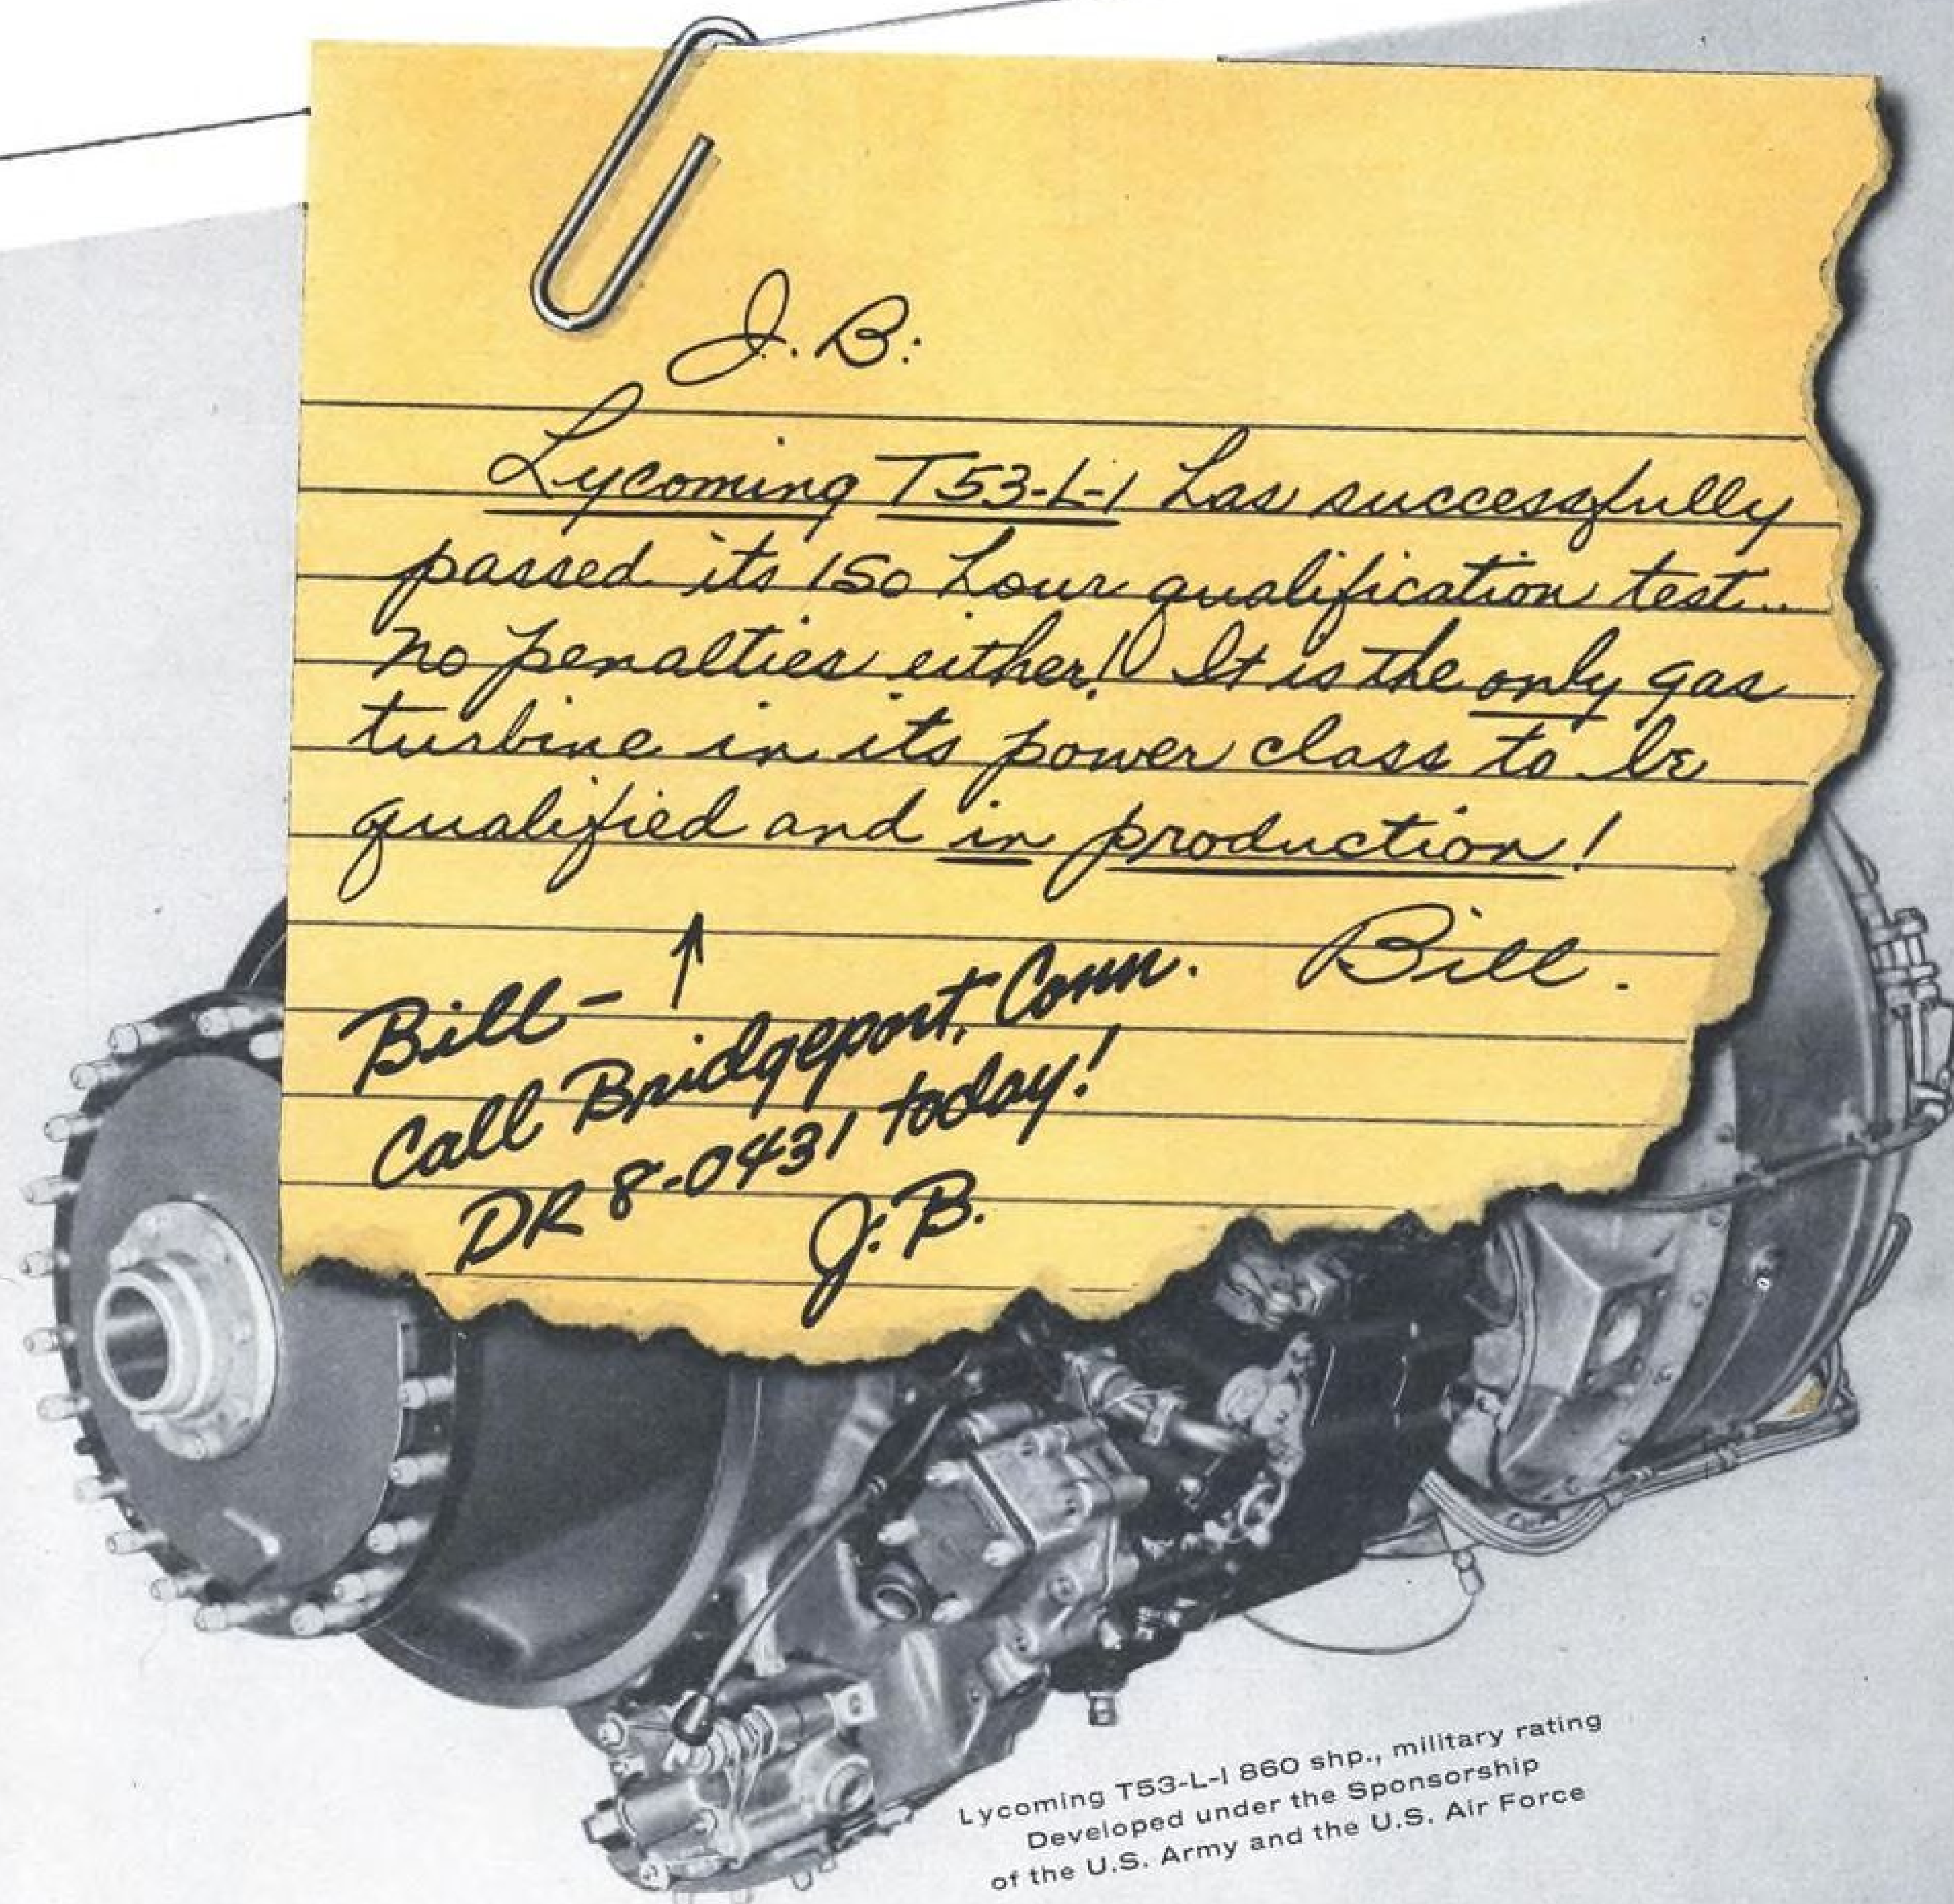 J. B:
Lycoming T53-L-1 has successfully
passed its 150 hour qualification test...
no penalties either! It is the only gas
turbine in its power class to be
qualified and in production!
Bill.
Bill-
Call Bridgeport, Conn.
DR 8-0431 today!
J. B.
Lycoming T53-L-1 860 shp., military rating
Developed under the Sponsorship
of the U.S. Army and the U.S. Air Force